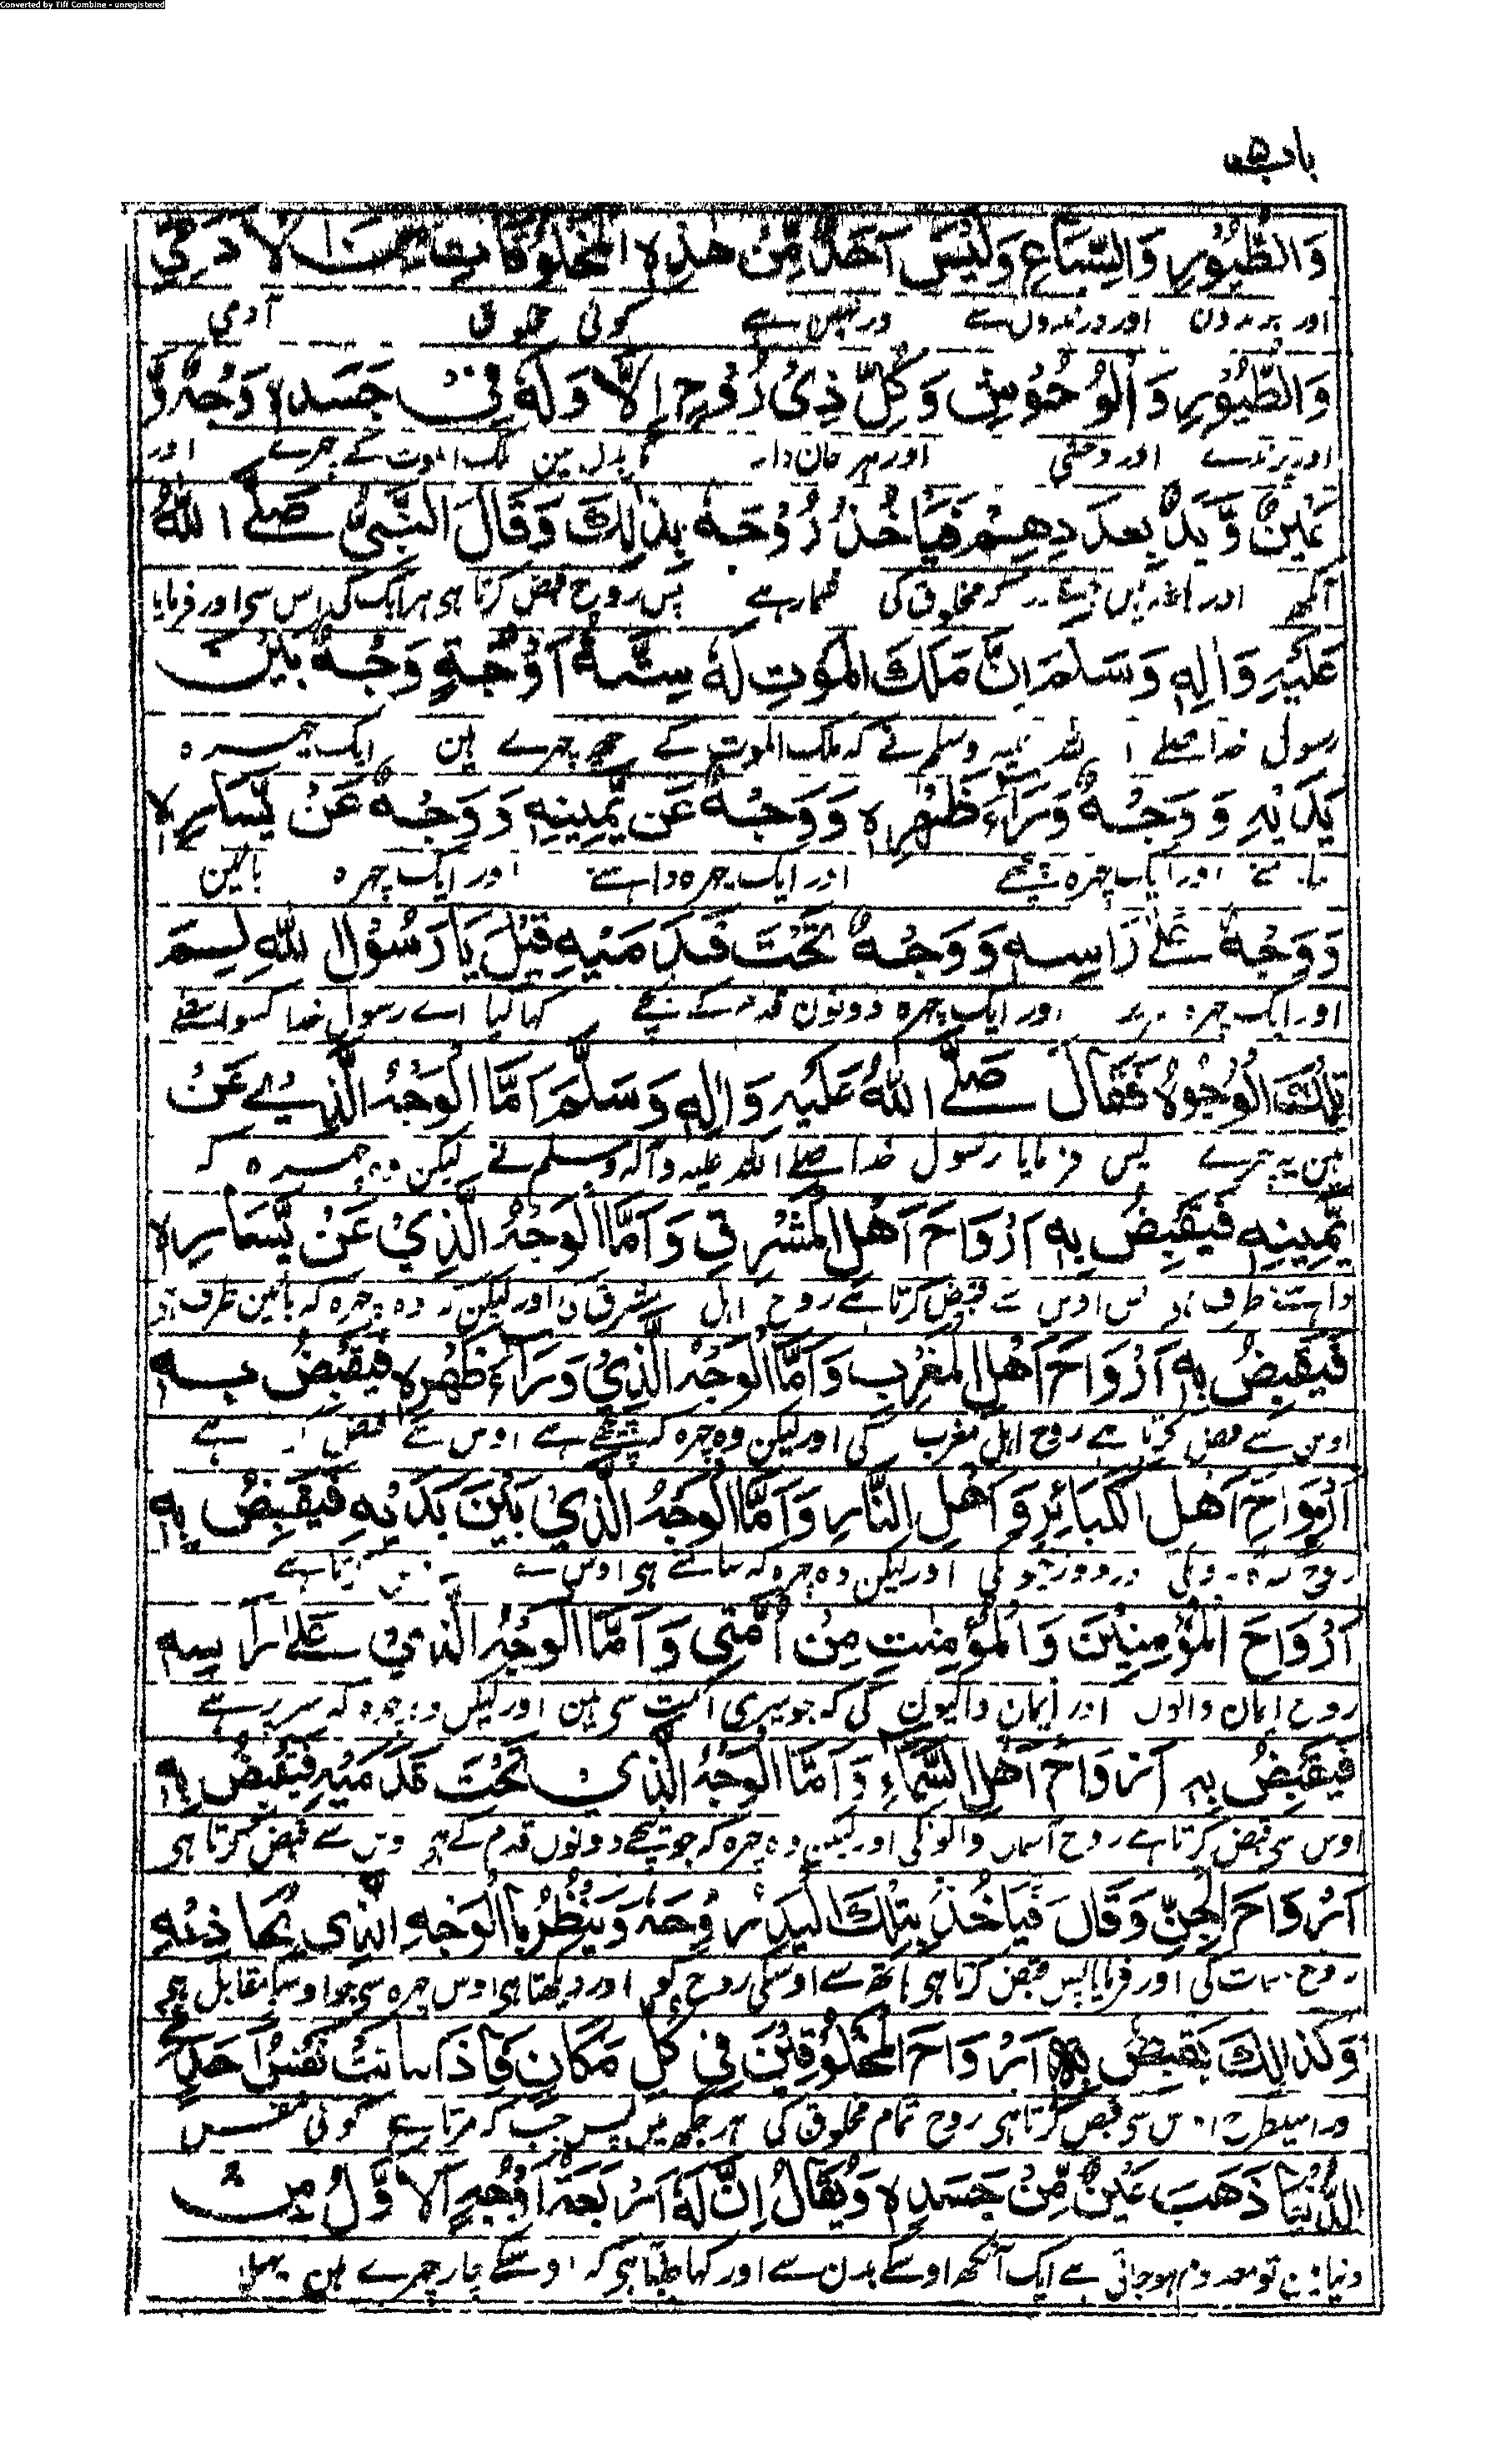 Converted by Tiff Combine - unregistered
باب ۵
وَالطُّيُورِ وَالسِّبَاعِ وَلَيْسَ اَحَدٌ مِّنْ هٰذِهِ الْمَخْلُوقَاتِ مِنَ الْاٰدَمِيِّ
اور پرندوں اور درندوں سے اور نہیں ہے کوئی مخلوق آدمی
وَالطُّيُوْرِ وَالْوُحُوْشِ وَكُلِّ ذِیْ رُوْحٍ اِلَّا وَلَهٗ فِیْ جَسَدِهٖ وَجْهٌ وَّ
اور پرندے اور وحشی اور ہر جان دار بدن مین ملک الموت کے چہرے اور
عَيْنٌ وَّيَدٌ بِعَدَدِهِمْ فَيَاْخُذُ رُوْحَهٗ بِذٰلِكَ وَقَالَ النَّبِیُّ صَلَّے اللّٰهُ
آنکھ اور ہاتھ مخلوق کی شمار ہے پس روح قبض کرتا ہی ہر ایک کی اس سی اور فرمایا
عَلَيْهِ وَاٰلِهٖ وَسَلَّمَ اِنَّ مَلَكَ الْمَوْتِ لَهٗ سِتَّةُ اَوْجُهٍ وَجْهٌ بَيْنَ
رسول خدا صلے اللہ علیہ وسلم نے کہ ملک الموت کے چھہ چہرے ہین ایک چہرہ
يَدَيْهِ وَوَجْهٌ وَرَاۤءَ ظَهْرِهٖ وَوَجْهٌ عَنْ يَّمِيْنِهٖ وَوَجْهٌ عَنْ يَّسَارِهٖ
سامنے اور ایک چہرہ پیچھے اور ایک چہرہ داہنے اور ایک چہرہ بائین
وَوَجْهٌ عَلٰے رَاْسِهٖ وَوَجْهٌ تَحْتَ قَدَمَيْهِ قِيْلَ يَا رَسُوْلَ اللّٰهِ لِمَ
اور ایک چہرہ سر پر اور ایک چہرہ دونوں قدم کے نیچے کہا گیا اے رسول خدا کسواسطے
تِلْكَ الْوُجُوْهُ فَقَالَ صَلَّے اللّٰهُ عَلَيْهِ وَاٰلِهٖ وَسَلَّمَ اَمَّا الْوَجْهُ الَّذِیْ عَنْ
ہین یہ چہرے پس فرمایا رسول خدا صلے اللہ علیہ وآلہ وسلم نے لیکن وہ چہرہ کہ
يَّمِيْنِهٖ فَيَقْبِضُ بِهٖ اَرْوَاحَ اَهْلِ الْمَشْرِقِ وَاَمَّا الْوَجْهُ الَّذِیْ عَنْ يَّسَارِهٖ
داہنے طرف ہی پس اوس سے قبض کرتا ہے روح اہل مشرق کی اور لیکن وہ چہرہ کہ بائین طرف ہی
فَيَقْبِضُ بِهٖ اَرْوَاحَ اَهْلِ الْمَغْرِبِ وَاَمَّا الْوَجْهُ الَّذِیْ وَرَاۤءَ ظَهْرِهٖ فَيَقْبِضُ بِهٖ
اوس سے قبض کرتا ہے روح اہل مغرب کی اور لیکن وہ چہرہ کہ پیچھے ہے اوس سے قبض کرتا ہے
اَرْوَاحَ اَهْلِ الْكَبَائِرِ وَاَهْلِ النَّارِ وَاَمَّا الْوَجْهُ الَّذِیْ بَيْنَ يَدَيْهِ فَيَقْبِضُ بِهٖ
اور لیکن وہ چہرہ کہ سامنے ہی اوس سے قبض کرتا ہے
اَرْوَاحَ الْمُؤْمِنِيْنَ وَالْمُؤْمِنٰتِ مِنْ اُمَّتِیْ وَاَمَّا الْوَجْهُ الَّذِیْ عَلٰے رَاْسِهٖ
روح ایمان والوں اور ایمان والیون کی کہ جو میری امت سی ہین اور لیکن وہ چہرہ کہ سر پر ہے
فَيَقْبِضُ بِهٖ اَرْوَاحَ اَهْلِ السَّمَاۤءِ وَاَمَّا الْوَجْهُ الَّذِیْ تَحْتَ قَدَمَيْهِ فَيَقْبِضُ بِهٖ
اوس سی قبض کرتا ہے روح آسمان والونکی اور لیکن وہ چہرہ کہ جو نیچے دونوں قدم کے ہی اوس سے قبض کرتا ہی
اَرْوَاحَ الْجِنِّ وَقَالَ فَيَاْخُذُ بِتِلْكَ الْيَدِ رُوْحَهٗ وَيَنْظُرُ بِالْوَجْهِ الَّذِیْ يُحَاذِيْهِ
روح جنات کی اور فرمایا پس قبض کرتا ہی ہاتھ سے اوسکی روح کو اور دیکھتا ہی اوس چہرہ سی جو اوسکا مقابل ہی
وَكَذٰلِكَ يَقْبِضُ بِهٖ اَرْوَاحَ الْمَخْلُوْقِيْنَ فِیْ كُلِّ مَكَانٍ فَاِذَا مَاتَتْ نَفْسُ اَحَدٍ فِی
اور اسیطرح اوس سی قبض کرتا ہی روح تمام مخلوق کی ہر جگہ میں پس جب کہ مرتا ہے کوئی نفس
الدُّنْيَا ذَهَبَ عَيْنٌ مِّنْ جَسَدِهٖ وَيُقَالُ اِنَّ لَهٗ اَرْبَعَةَ اَوْجُهٍ اَلْاَوَّلُ مِنْ
دنیا مین تو معدوم ہو جاتی ہے ایک آنکھ اوسکے بدن سے اور کہا جاتا ہی کہ اوسکے چار چہرے ہین پہلا